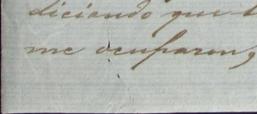 diciendo que
me ocuparon